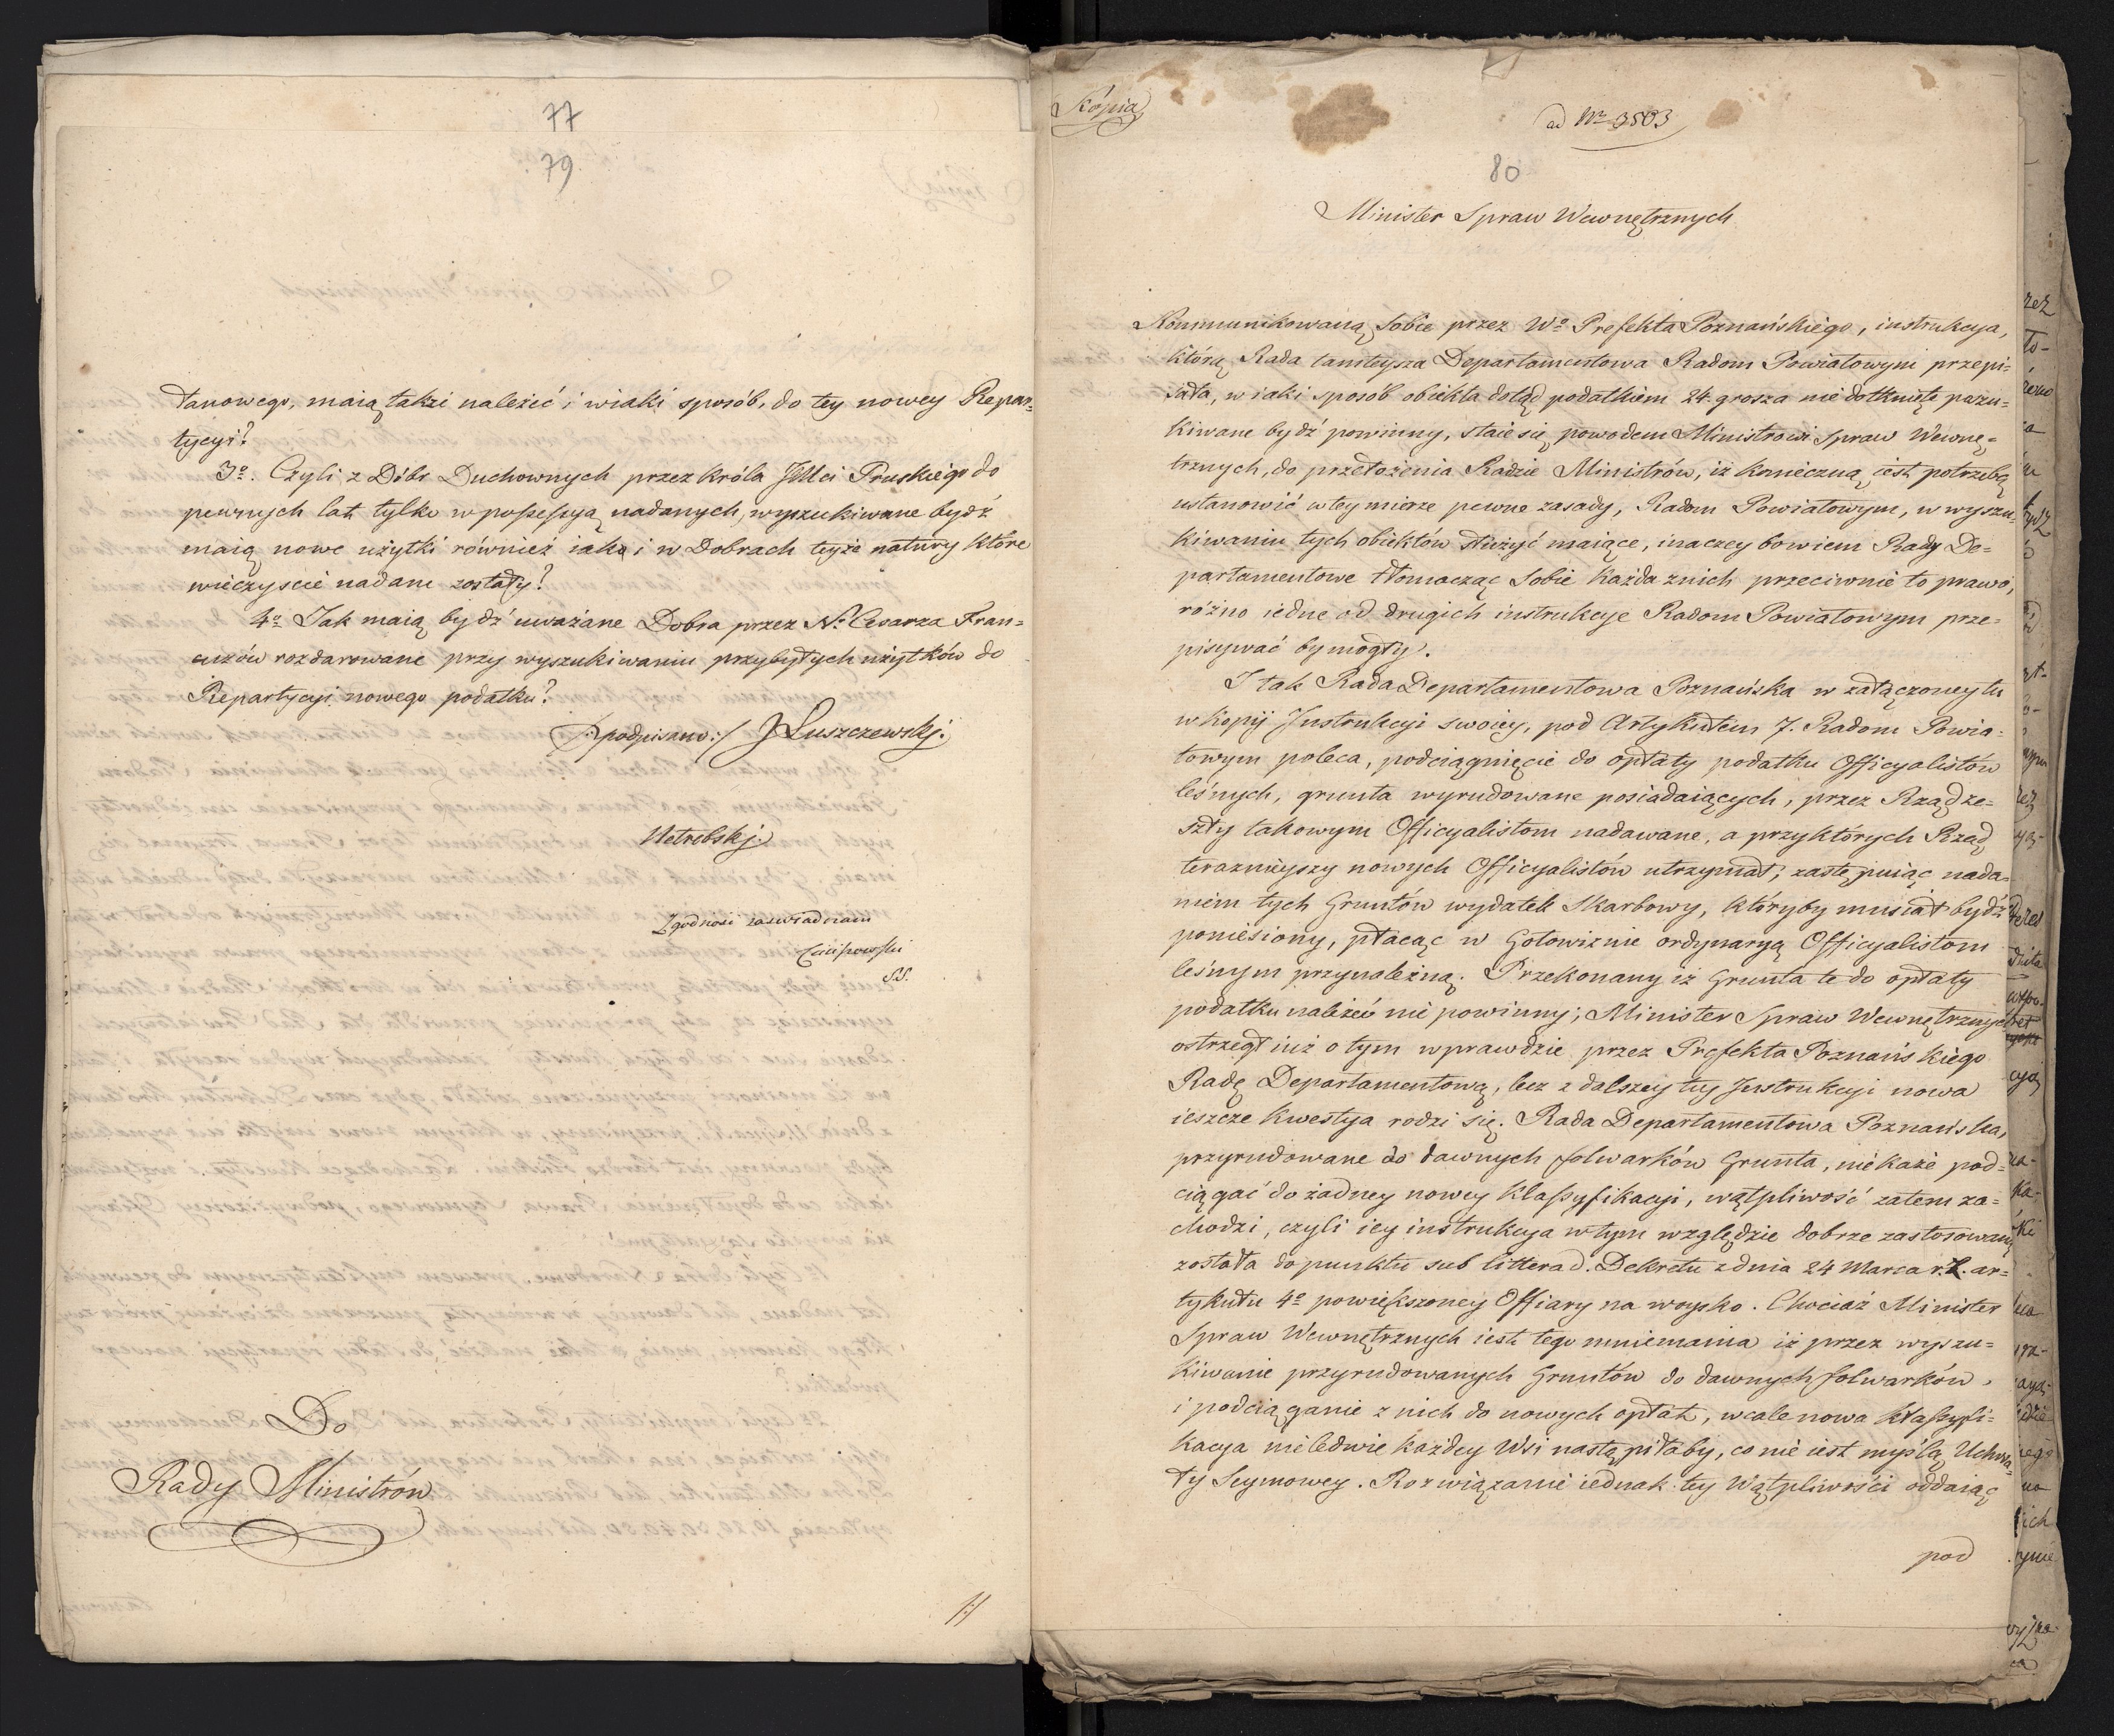 77
79
tanowego, maią także należić i wiaki sposób, do tey nowey Repar=
tycyi?
3o. Czyli z Dóbr Duchownych przez Króla JMci Pruskiégo do
pewnych lat tylko w possessyą nadanych, wyszukiwane bydź
maią nowe użytki równieź iako i w Dobrach teyże natury które
wieczyście nadane zostały?
4o Jak maią bydź uważane Dobra przez N. Cesarza Fran=
cuzów rozdarowane przy wyszukiwaniu przybyłych użytków do
Repartycyi nowego podatku?
/:podpisano:/ J Łuszczewskj.
Netrebskj.
Zgodność zaswiadczam
SS.
Do
Rady Ministrów
Kópia
ad Nro 3503
80
Minister Spraw Wewnętrznych
Kommunikowaną sobie przez Wo Prefekta Poznańskiégo, instrukcya,
którą Rada tamteysza Departamentowa Radom Powiatowym przepi=
sała, w iaki sposób obiekta dotąd podatkiem 24. grosza nie dotknięte poszu=
kiwane bydź powinny, staie się powodem Ministrowi Spraw Wewnę=
trznych, do przełożenia Radzie Ministrów, iż konieczną iest potrzebą
ustanowić w tey mierze pewne zasady, Radom Powiatowym, w wyszu=
kiwaniu tych obiektów służyć maiące, inaczey bowiem Rady De=
partamentowe tłomacząc sobie każda z nich przeciwnie to prawo,
różno iedne od drugich instrukcye Radom Powiatowym prze=
pisywać by mogły.
I tak Rada Departamentowa Poznańska w załączoney tu
w Kopij Instrukcyi swoiey, pod Artykułem 7. Radom Powia=
towym poleca, podciągnięcie do opłaty podatku Officyalistów
leśnych, grunta wyrudowane posiadaiących, przez Rząd ze=
szły takowym Officyalistom nadawane, a przy których Rząd
terazniéyszy nowych Officyalistów utrzymał, zastępuiąc nada=
niem tych Gruntów wydatek Skarbowy, któryby musiał bydź
poniesiony, płacąc w Gotowiznie ordynaryą Officyalistom
leśnym przynależną. Przekonany iż Grunta te do opłaty
podatku należeć nie powinny; Minister Spraw Wewnętrznych
ostrzegł iuż o tym wprawdzie przez Prefekta Poznańskiego
Radę Departamentową, lecz z dalszey tey Instrukcyi nowa
ieszcze kwestya rodzi się. Rada Departamentowa Poznańska,
przyrudowane do dawnych folwarków Grunta, nie każe pod=
ciągać do żadney nowey klassyfikacyi, wątpliwość zatem za=
chodzi, czyli iey instrukcya w tym względzie dobrze zastosowaną
została do punktu sub littera d. Dekretu z dnia 24 Marca r. b. ar=
tykułu 4o powiększoney Offiary na woysko. Chociaż Minister
Spraw Wewnętrznych iest tego mniemania iż przez wyszu=
kiwanie przyrudowanych Gruntów do dawnych folwarków,
i podciąganie z nich do nowych opłat, wcale nowa klassyfi=
kacya nieledwie każdey Wsi nastąpiłaby, co nie iest myślą Uchwa=
ły Seymowey. Rozwiązanie iednak tey Wątpliwości oddaiąc
pod